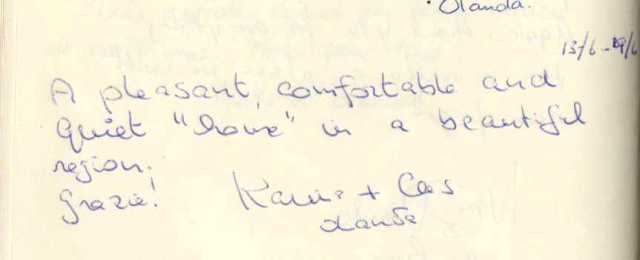 Olanda.
13/6 - 29/6
A pleasant, comfortable and
quiet "home" in a beautiful
region.
Grazie!
+ Cas